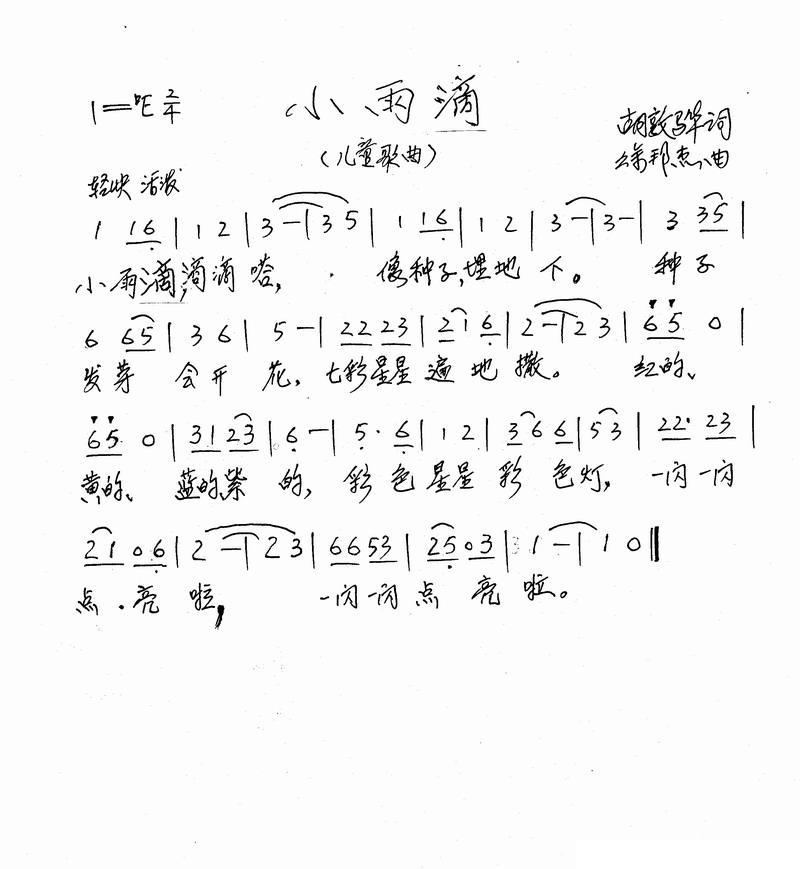 1=♭E 2/4 小雨滴
(儿童歌曲)
胡敦骅词
徐邦杰曲
轻快 活泼
1 16 | 1 2 | 3 - | 3 5 | 1 16 | 1 2 | 3 - | 3 - | 3 35 |
小雨滴,滴滴嗒, 像种子,埋地下。 种子
6 65 | 3 6 | 5 - | 22 23 | 21 6 | 2 - | 2 3 | 65 0 |
发芽 会开花,七彩星星遍地撒。 红的、
65 0 | 31 23 | 6 - | 5· 6 | 1 2 | 36 6 | 53 | 22· 23 |
黄的、 蓝的紫的,彩色星星彩色灯,一闪一闪
21 06 | 2 - | 2 3 | 66 53 | 25 03 | 1 - | 1 0 ‖
点·亮啦, 一闪一闪点亮啦。